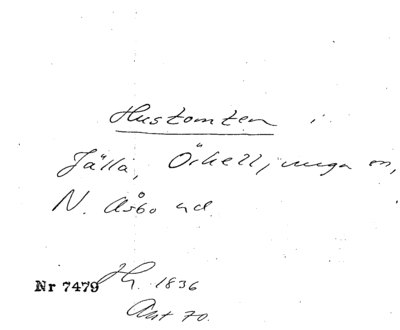 Hustomten i
Jälla, Örkelljunga sn,
N. Åsbo hd.
Nr 7479 1836
Ant 70.